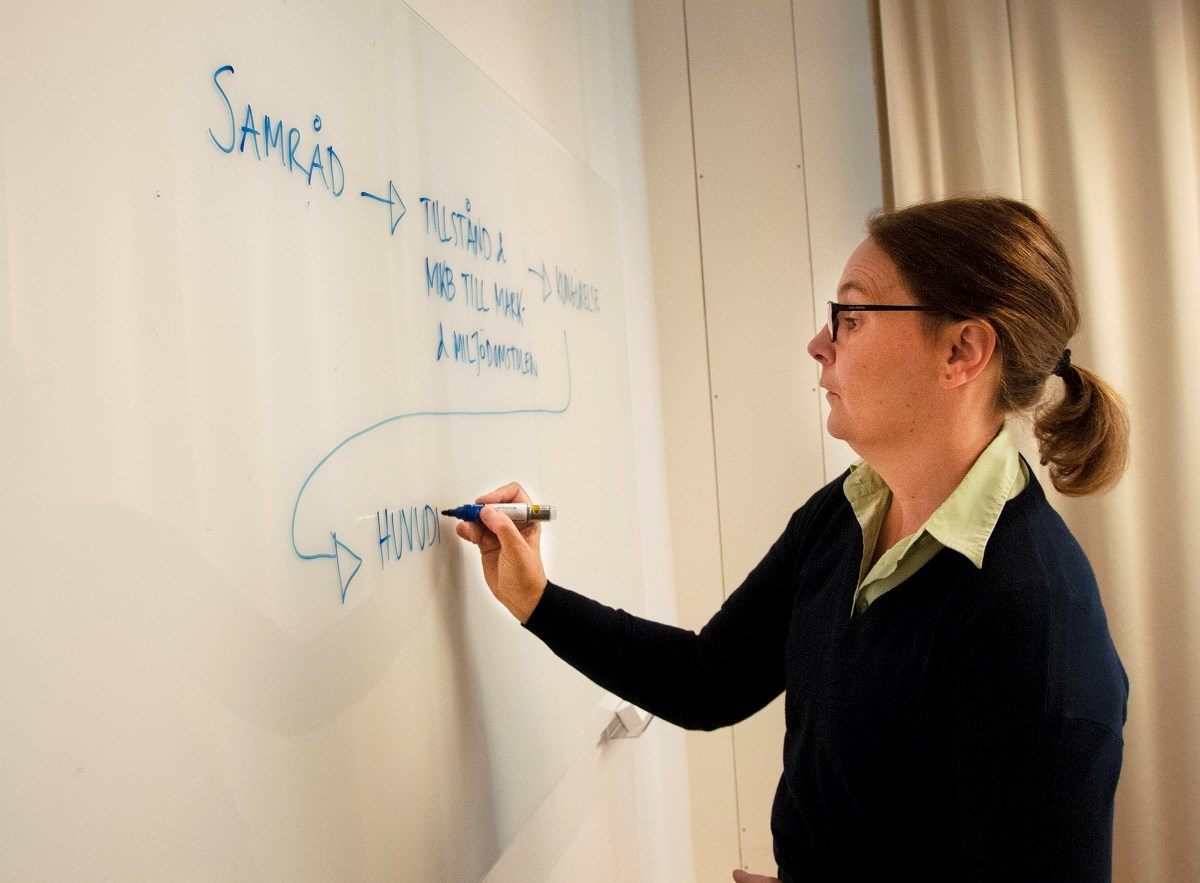 SAMRÅD
TILLSTÅND &
MKB TILL MARK-
& MILJÖDOMSTOLEN
KUNGÖRELSE
HUVUD